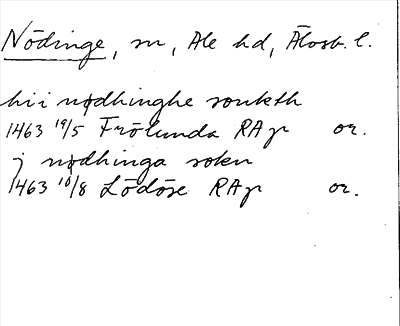 Nödinge, sn, Ale hd, Älvsb. l.
hi i nødhinghe sonkth
1463 19/5 Frölunda RAp or.
j nødhinga sokn
1463 10/8 Lödöse RAp or.